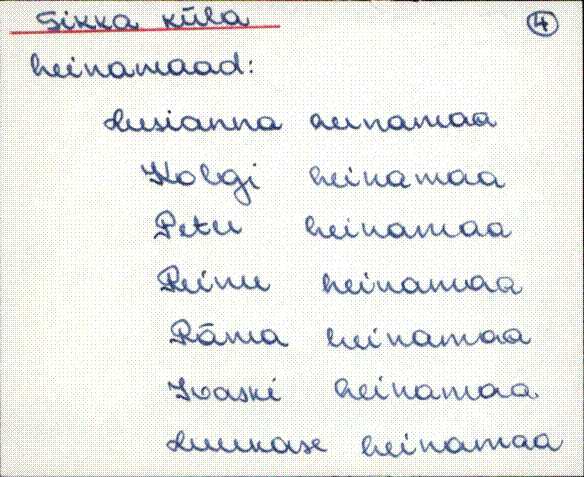 Sikka küla 4
heinamaad:
Susianna heinamaa
Kolgi heinamaa
Petu heinamaa
Reinu heinamaa
Räma heinamaa
Ivaski heinamaa
heinamaa